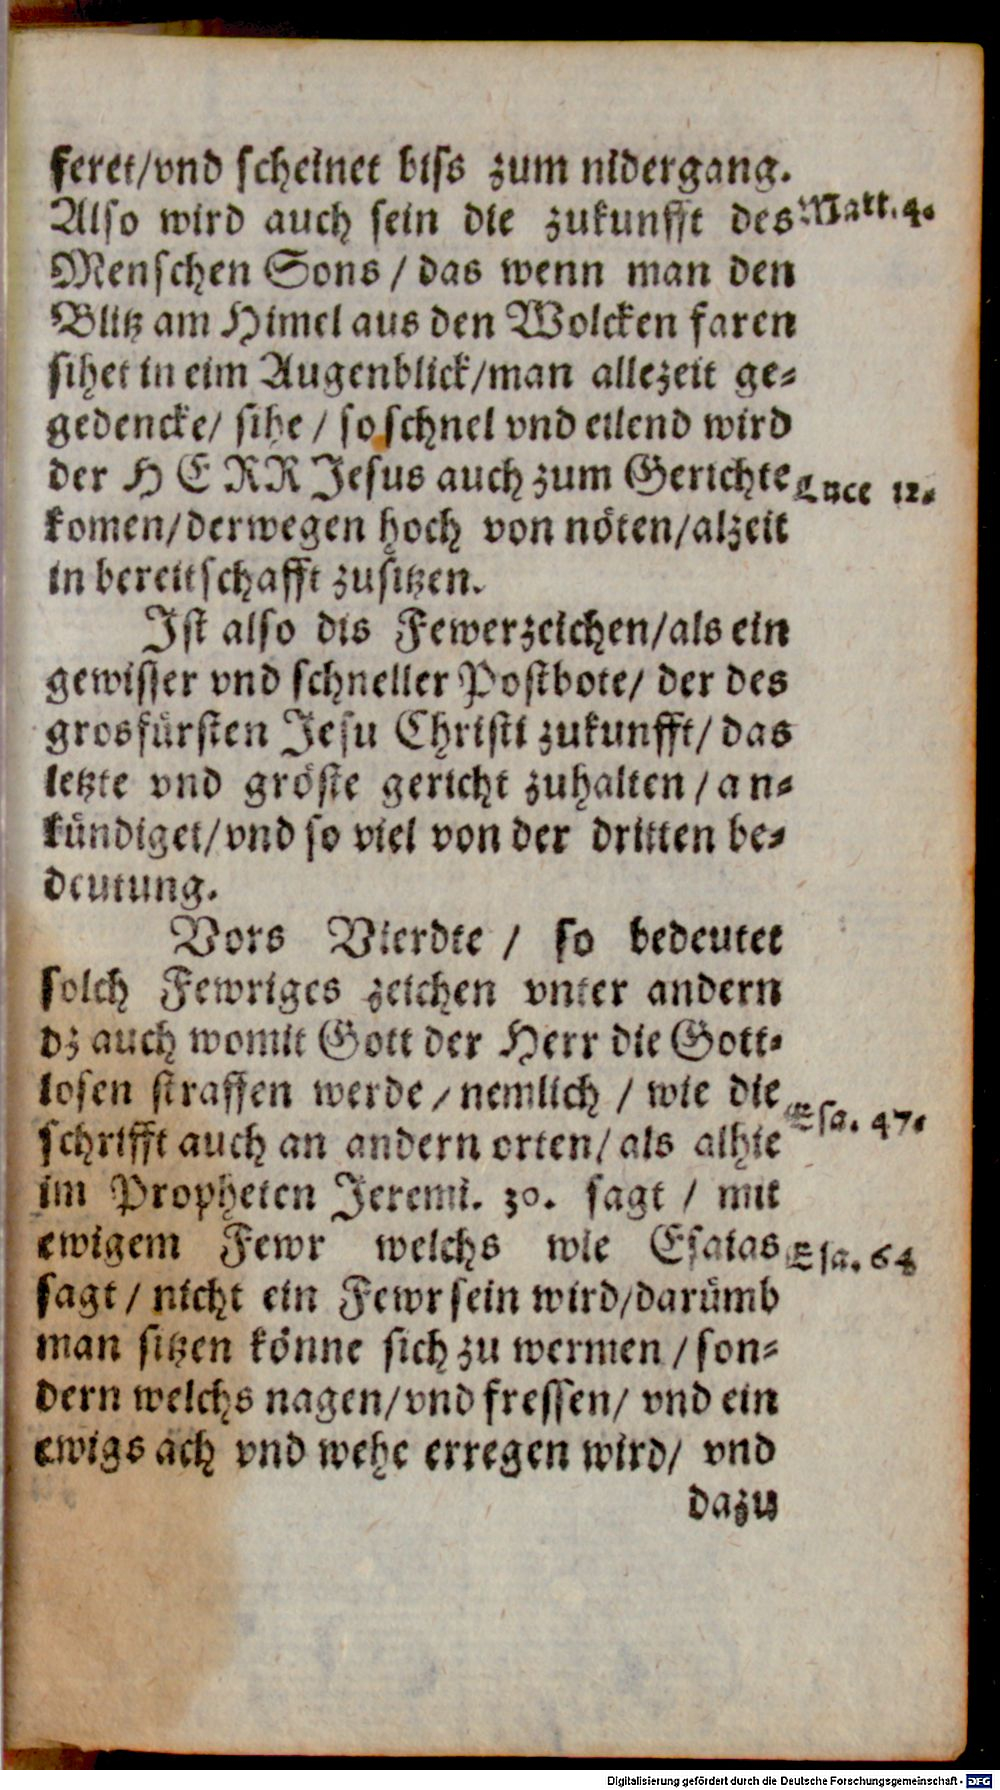 feret/vnd scheinet biss zum nidergang.
Also wird auch sein die zukunfft des Matt. 4.
Menschen Sons / das wenn man den
Blitz am Himel aus den Wolcken faren
sihet in eim Augenblick/man allezeit ge-
gedencke/ sihe / so schnel vnd eilend wird
der HERR Jesus auch zum Gerichte Luce 12.
komen/derwegen hoch von nöten/alzeit
in bereitschafft zusitzen.
Ist also dis Fewerzeichen/als ein
gewisser vnd schneller Postbote/ der des
grosfürsten Jesu Christi zukunfft/ das
letzte vnd gröste gericht zuhalten / an-
kündiget/vnd so viel von der dritten be-
deutung.
Vors Vierdte / so bedeutet
solch Fewriges zeichen vnter andern
dz auch womit Gott der Herr die Gott-
losen straffen werde / nemlich / wie die
schrifft auch an andern orten/ als alhie Esa. 47.
im Propheten Jeremi. 30. sagt / mit
ewigem Fewr welchs wie Esaias Esa. 64
sagt / nicht ein Fewr sein wird/darümb
man sitzen könne sich zu wermen / son-
dern welchs nagen/vnd fressen/ vnd ein
ewigs ach vnd wehe erregen wird/ vnd
dazu
Digitalisierung gefördert durch die Deutsche Forschungsgemeinschaft - DFG